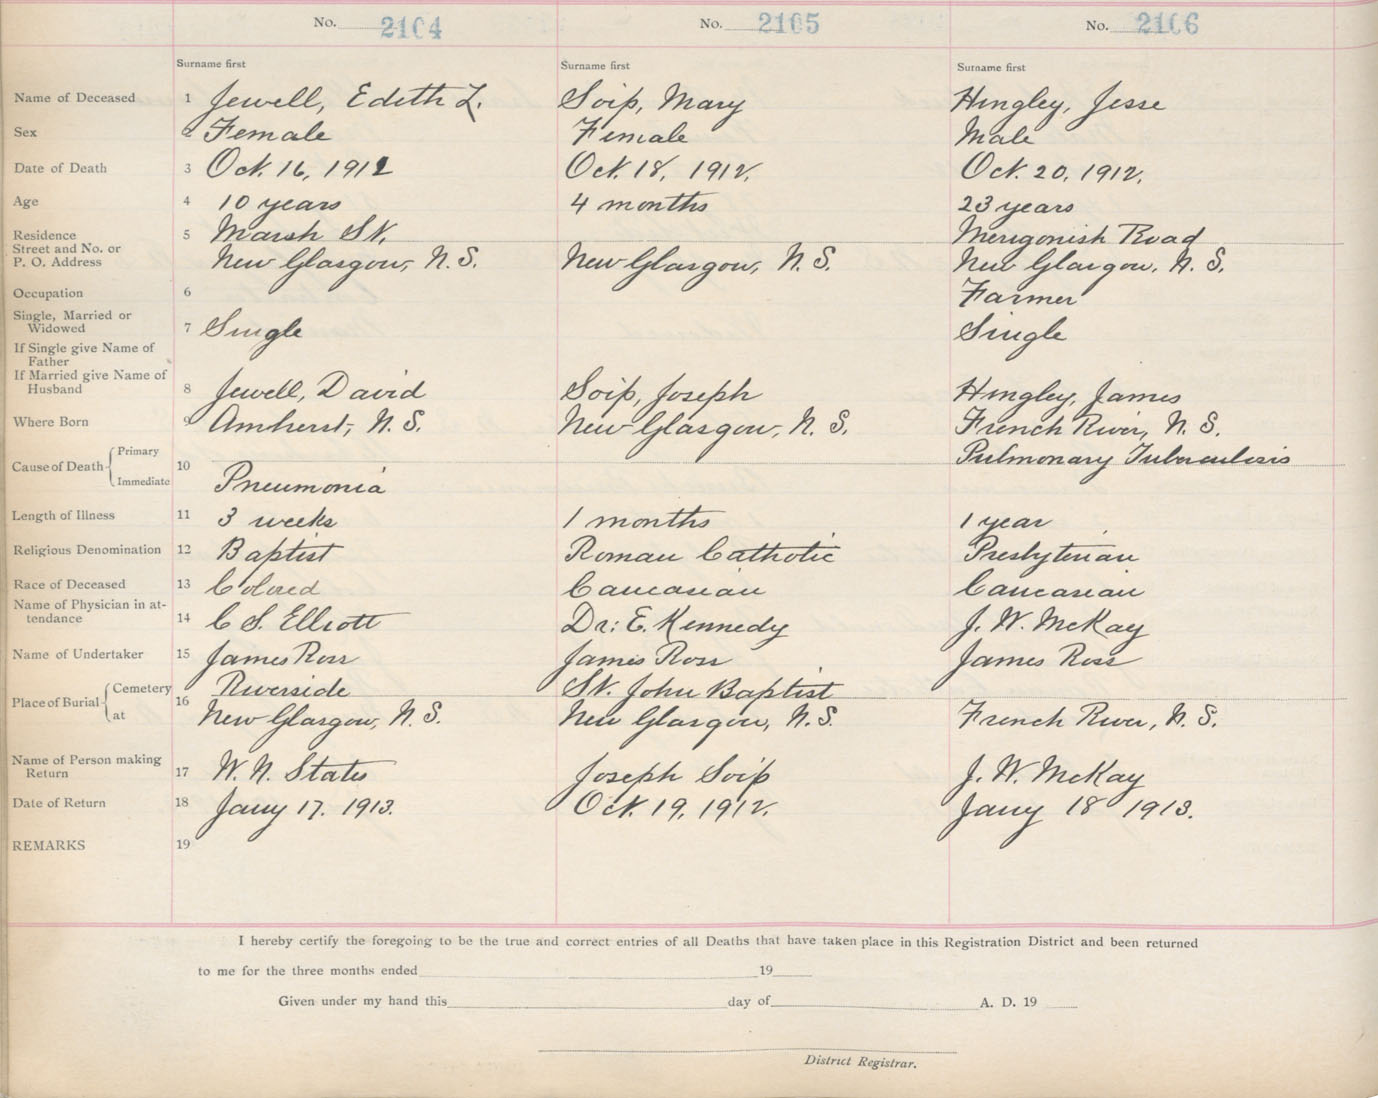 No. 2104 No. 2105 No. 2106
Surname first Surname first Surname first
Name of Deceased 1 Jewell, Edith L. Soip, Mary Hingley, Jesse
Sex 2 Female Female Male
Date of Death 3 Oct. 16, 1912 Oct. 18, 1912. Oct. 20, 1912.
Age 4 10 years 4 months 23 years
Residence 5 Marsh St. Merigonish Road
Street and No. or
P. O. Address New Glasgow, N.S. New Glasgow, N.S. New Glasgow, N.S.
Occupation 6 Farmer
Single, Married or
Widowed 7 Single Single
If Single give Name of
Father
If Married give Name of
Husband 8 Jewell, David Soip, Joseph Hingley, James
Where Born 9 Amherst, N.S. New Glasgow, N.S. French River, N.S.
Cause of Death Primary 10 Pulmonary Tuberculosis
Immediate Pneumonia
Length of Illness 11 3 weeks 1 months 1 year
Religious Denomination 12 Baptist Roman Catholic Presbyterian
Race of Deceased 13 Colored Caucasian Caucasian
Name of Physician in at-
tendance 14 C S. Elliott Dr: E. Kennedy J. W. McKay
Name of Undertaker 15 James Ross James Ross James Ross
Place of Burial Cemetery 16 Riverside St. John Baptist
at New Glasgow, N.S. New Glasgow, N.S. French River, N.S.
Name of Person making
Return 17 W. N. States Joseph Soip J. W. McKay
Date of Return 18 Jany 17. 1913. Oct. 19, 1912. Jany 18 1913.
REMARKS 19
I hereby certify the foregoing to be the true and correct entries of all Deaths that have taken place in this Registration District and been returned
to me for the three months ended 19
Given under my hand this day of A. D. 19
District Registrar.